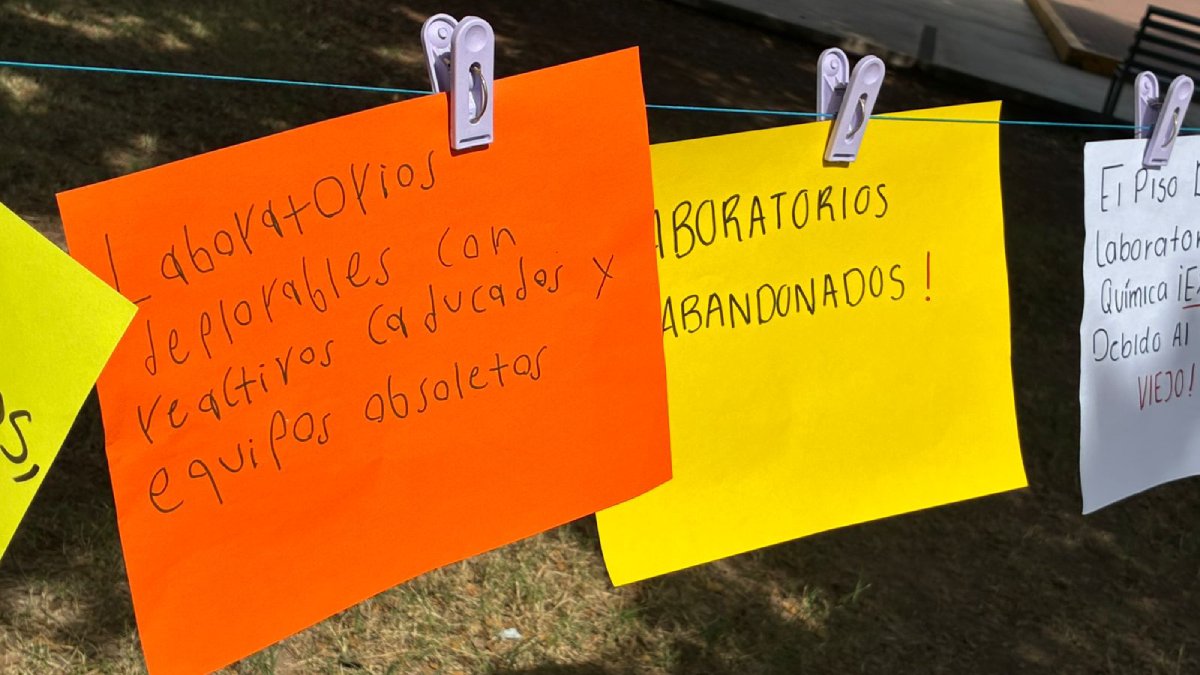 Laboratorios
deplorables con
reactivos caducados y
equipos obsoletos
ABORATORIOS
ABANDONADOS!
El Piso
laborator
Química ¡E
Debido Al
VIEJO!